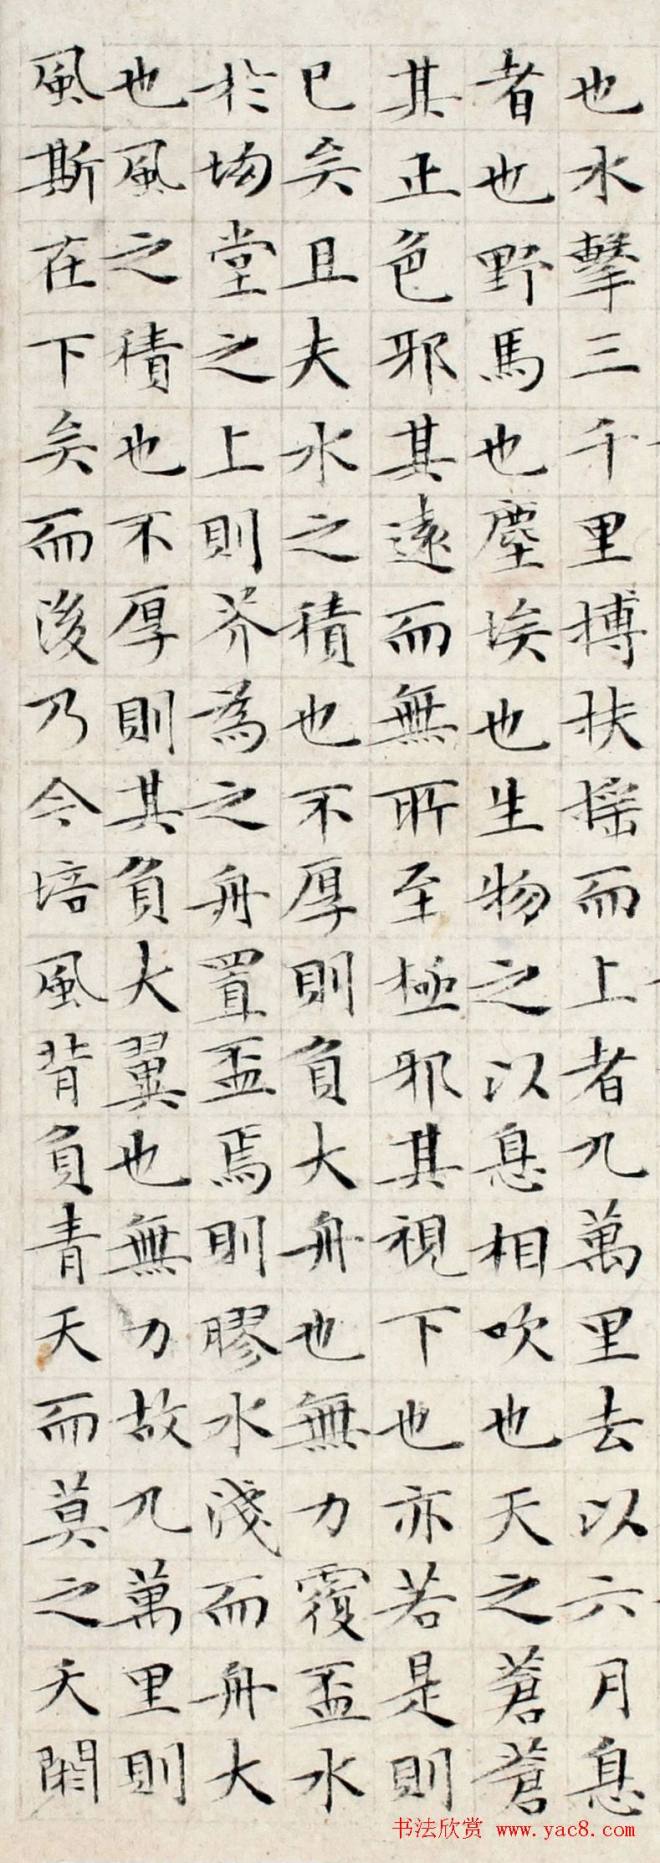 也水擊三千里搏扶搖而上者九萬里去以六月息
者也野馬也塵埃也生物之以息相吹也天之蒼蒼
其正色邪其遠而無所至極邪其視下也亦若是則
已矣且夫水之積也不厚則負大舟也無力覆盃水
於坳堂之上則芥為之舟置盃焉則膠水淺而舟大
也風之積也不厚則其負大翼也無力故九萬里則
風斯在下矣而後乃今培風背負青天而莫之夭閼
书法欣赏 www.yac8.com